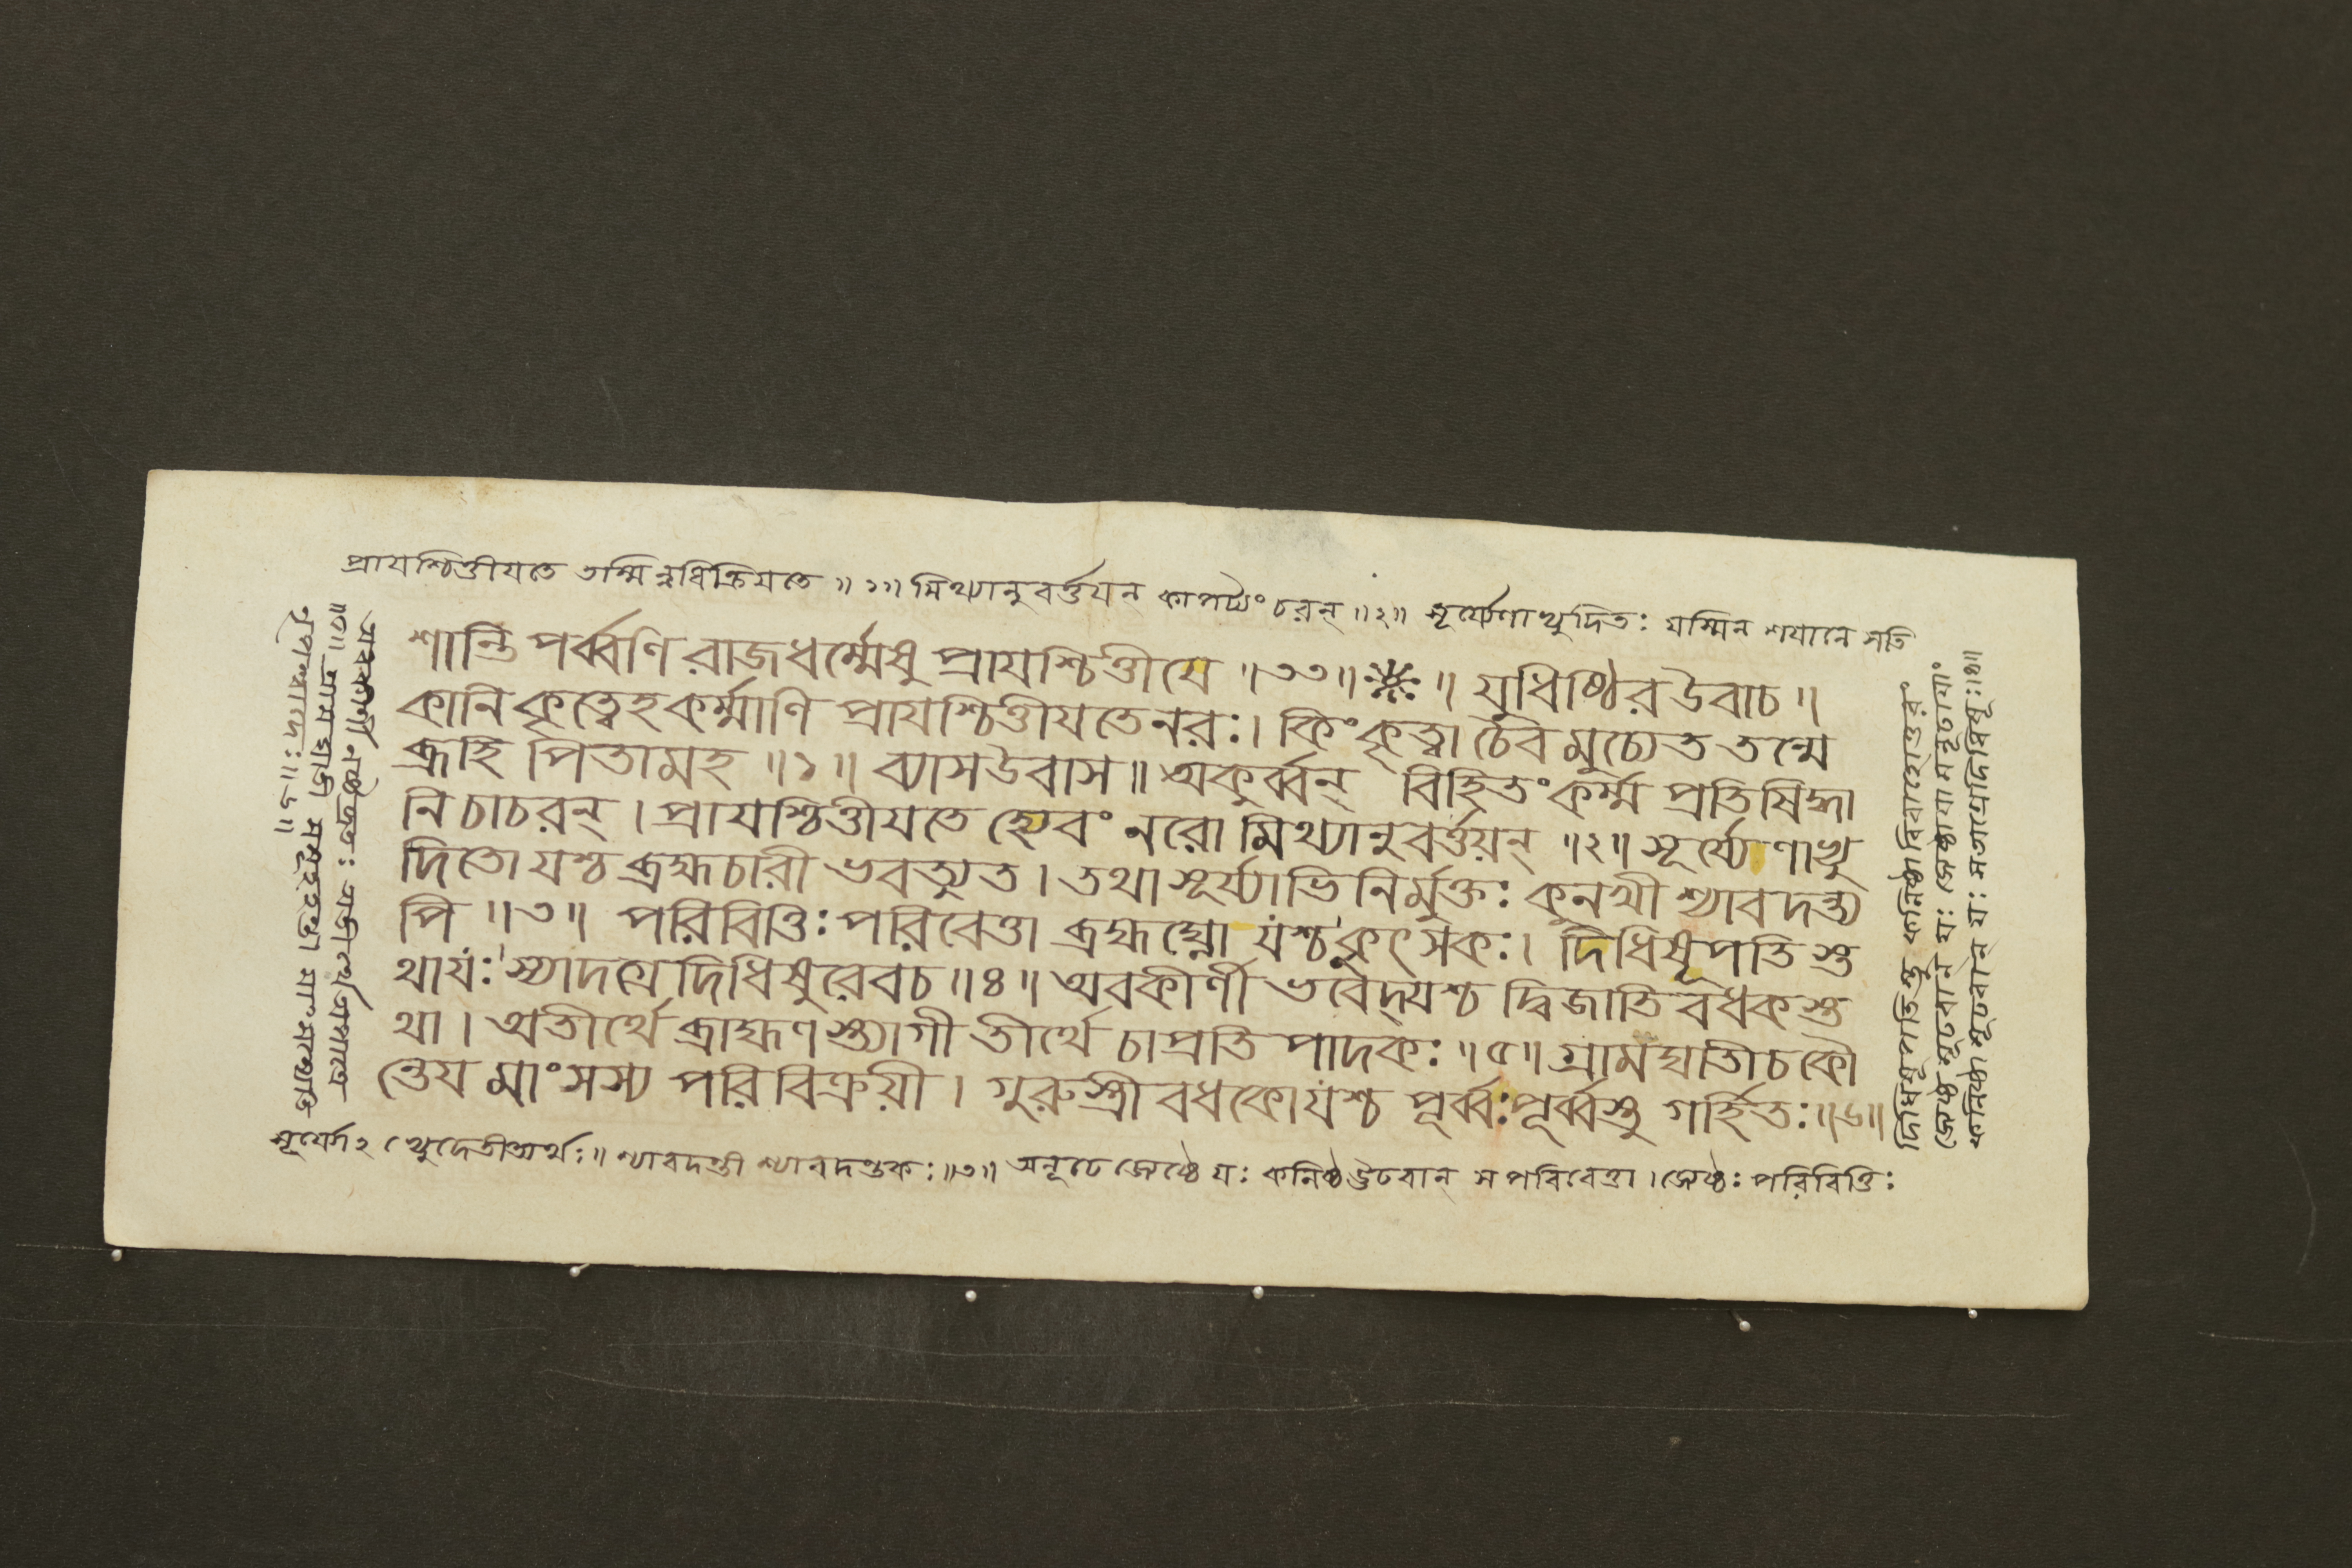 প্রাযশ্চিত্তীযতে তস্মিন্নধিক্রিযতে ॥১॥ মিথ্যানুবর্ত্তযন কাপট্যং চরন্ ॥২॥ সূর্য্যেণাভ্যুদিতঃ যস্মিন শযানে সতি
শান্তি পর্ব্বণি রাজধর্ম্মেষু প্রাযশ্চিত্তীযে ॥৩৩॥ ॥ যুধিষ্ঠির উবাচ ॥
কানি কৃত্বেহ কর্ম্মাণি প্রাযশ্চিত্তীযতে নরঃ। কিং কৃত্বা চৈব মুচ্যেত তন্মে
ব্রূহি পিতামহ ॥১॥ ব্যাস উবাস ॥ অকুর্ব্বন্ বিহিতং কর্ম্ম প্রতিষিদ্ধা
নি চাচরন্ । প্রাযশ্চিত্তীযতে হ্যেবং নরো মিথ্যানুবর্ত্তয়ন্ ॥২॥ সূর্য্যেণাভ্যু
দিতো যশ্চ ব্রহ্মচারী ভবত্যুত । তথা সূর্য্যাভিনির্মুক্তঃ কুনখী শ্যাবদন্ত্য
পি ॥৩॥ পরিবিত্তিঃ পরিবেত্তা ব্রহ্মঘ্নো যশ্চ কুৎসকঃ। দিধিষূপতিস্ত
থা যঃ স্যাদগ্রে দিধিষুরেব চ ॥৪॥ অবকীর্ণী ভবেদ্যশ্চ দ্বিজাতি বধকস্ত
থা । অতীর্থে ব্রাহ্মণস্ত্যাগী তীর্থে চাপ্রতি পাদকঃ ॥৫॥ গ্রামঘাতী চ কৌ
ন্তেয মাংসস্য পরিবিক্রয়ী । গুরুস্ত্রী বধকো যশ্চ পূর্ব্বঃ পূর্ব্বস্তু গর্হিতঃ ॥৬॥
শ্যাবদন্তী শ্যাবদন্তকঃ ॥৩॥ অনূঢে জ্যেষ্ঠে যঃ কনিষ্ঠ ঊঢবান্ স পরিবেত্তা । জ্যেষ্ঠঃ পরিবিত্তিঃ
দিধিষূপতিস্তু কনিষ্ঠা বিবাহোত্তরং
জ্যেষ্ঠাযামনূঢাযাং
কনিষ্ঠা মূঢবান্ যঃ
অবকীর্ণী নষ্টব্রতঃ
॥৫॥ গ্রামঘাতী
॥৬॥